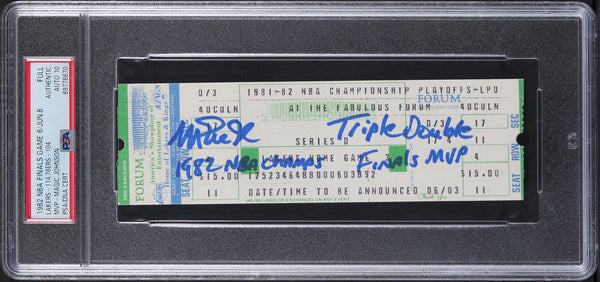 1982 NBA FINALS GAME 6/JUN 8
LAKERS - 114, 76ERS - 104
MVP - MAGIC JOHNSON
PSA/DNA CERT
FULL
AUTHENTIC
AUTO 10
69776670
PSA
FORUM
America's Showplace of
Home of Lakers & Kings
SEAT
D/3
1981-82 NBA CHAMPIONSHIP PLAYOFFS-LPD
40COLN
AT THE FABULOUS FORUM
17
SERIES D
LAKERS HOME GAME 3
$15.00
17523464BB000603892
11
DATE/TIME TO BE ANNOUNCED 06/03
NO REFUNDS OR EXCHANGES ON ANY EVENT
Thank You
1982 NBA Champs
Triple Double
Finals MVP
FORUM
D/3
40COLN
17
4
$15.00
11
SEC
ROW
SEAT